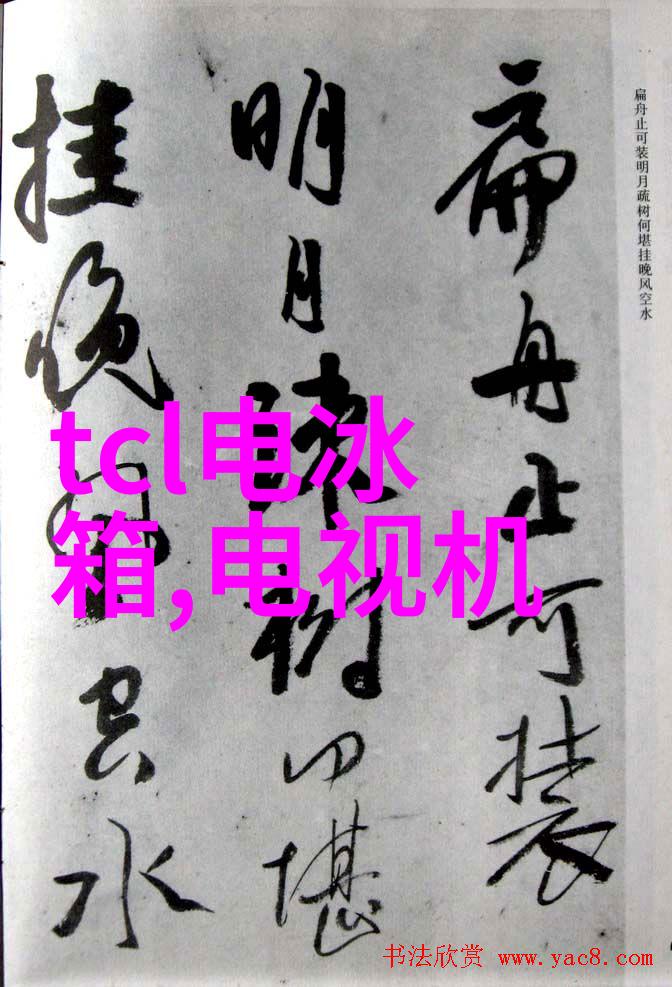 扁舟止可装
明月疏树何堪
挂晚风空水
扁舟止可装明月疏树何堪挂晚风空水
tcl电冰
箱,电视机
书法欣赏 www.yac8.com